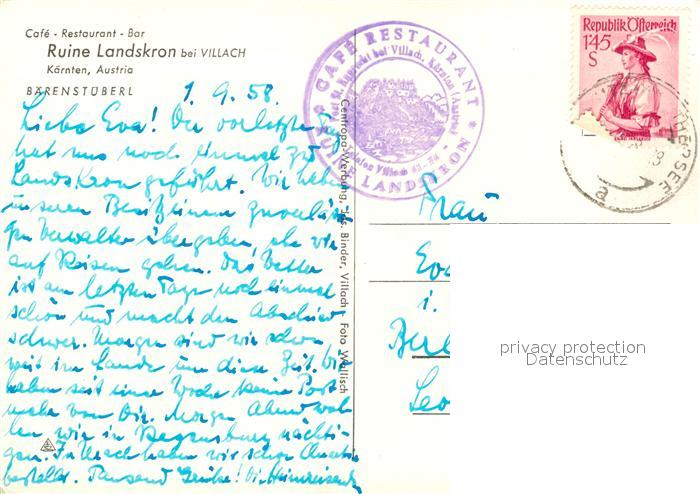 Café - Restaurant - Bar
Ruine Landskron bei VILLACH
Kärnten, Austria
BÄRENSTÜBERL
1. 9. 58.
Liebe Eva! Der vorletzte
hat uns noch einmal zur
Landskron geführt. Wir haben
unseren Besitz einem zuverlässi-
gen Verwalter übergeben, ehe wir
auf Reisen gehen. Das Wetter
ist am letzten Tage noch einmal
schön und macht den Abschied
schwer. Morgen sind wir schon
weit im Lande um diese Zeit. Wir
haben seit einer Woche keine Post
mehr von Dir. Morgen Abend wol-
len wir in Regensburg nächti-
gen. In haben wir schon Quartier
bestellt. Tausend Grüsse! Die Heimreisenden
Centropa-Werbung, Jos. Binder, Villach - Foto Wallisch
CAFÉ RESTAURANT
RUINE LANDSKRON
bei Villach, Kärnten (Austria)
Republik Österreich
1'45
S
a
Frau
Eva
i.
Berl
Leo
privacy protection
Datenschutz